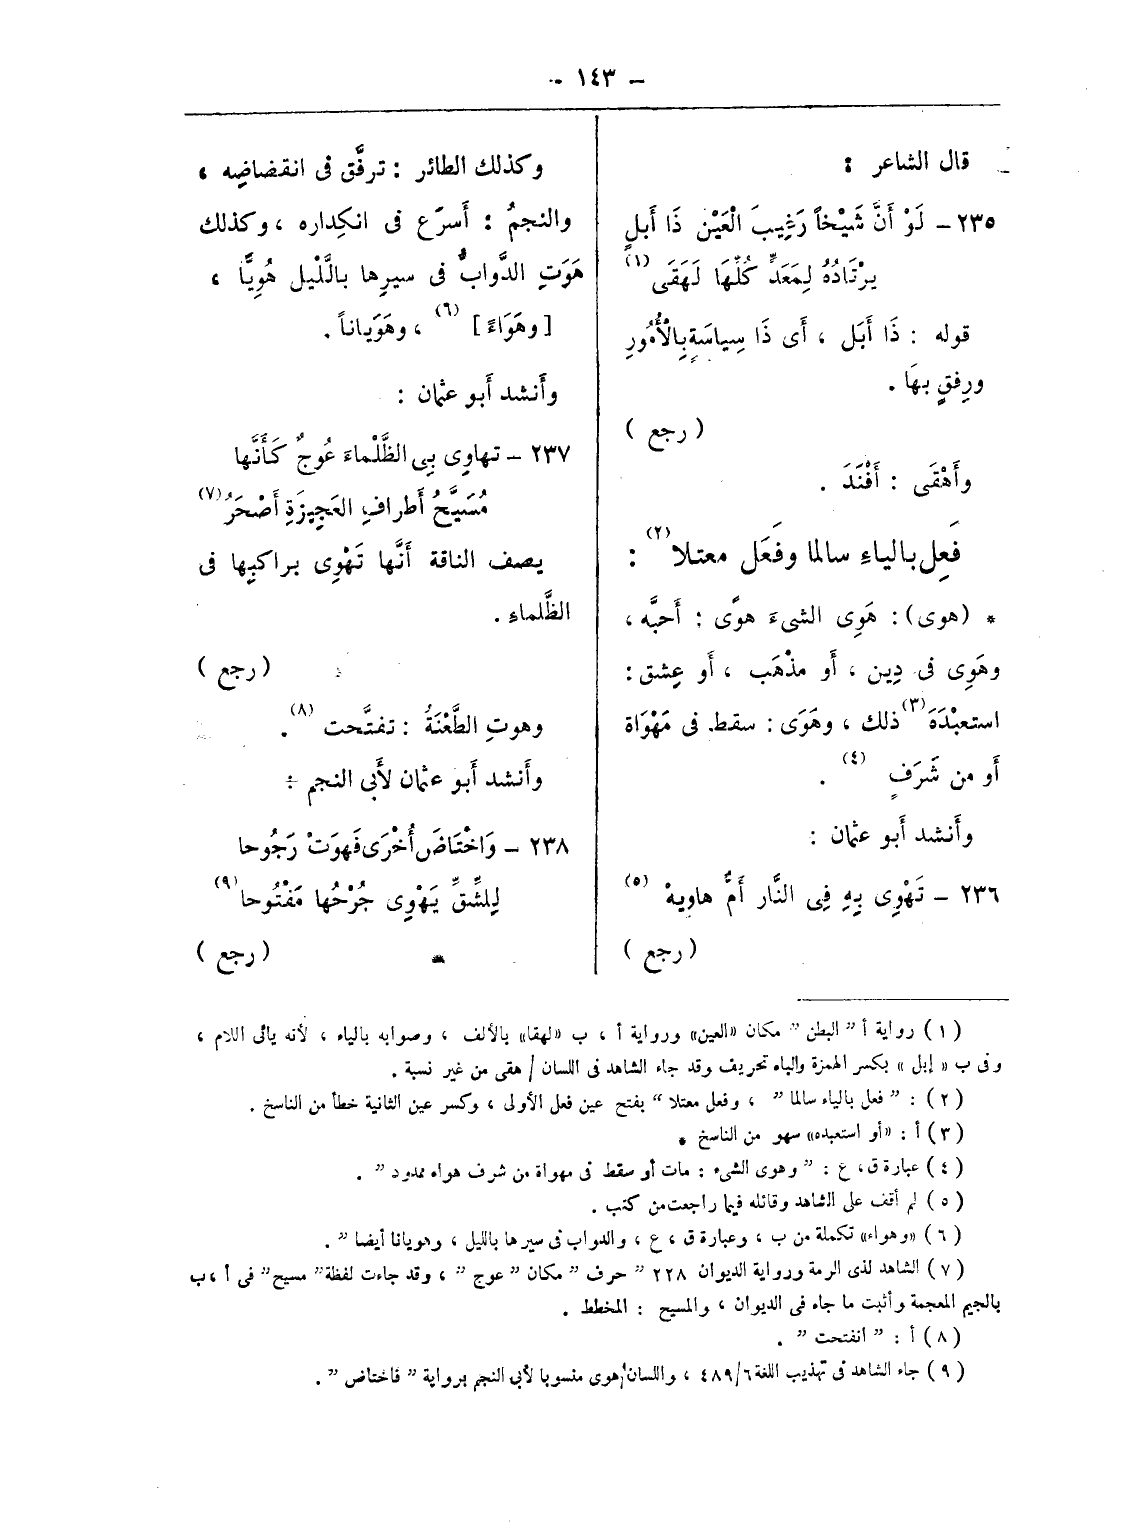 – ١٤٣ –
قال الشاعر :
٢٣٥ – لَوْ أَنَّ شَيْخاً رَغِيبَ الْعَيْن ذَا أَبلٍ
يرْتَادُهُ لِمَعَدٍّ كُلِّهَا لَهَقَى (١)
قوله : ذَا أَبَل ، أَى ذَا سِياسَةٍ بِالْأُمُورِ
ورِفقٍ بهَا .
( رجع )
وأَهْقَى : أَفْنَدَ .
فَعِل بالياءِ سالما وفَعَل معتلا (٢) :
* (هوى) : هَوِى الشىءَ هوًى : أَحبَّه ،
وهَوِى فى دِين ، أَو مذْهَب ، أَو عِشق :
استعبْدَهَ (٣) ذلك ، وهَوَى : سقط فى مَهْوَاة
أَو من شَرَفٍ (٤) .
وأَنشد أَبو عثمان :
٢٣٦ – تَهْوِى بِهِ فِى النَّار أَمُّ هاويهْ (٥)
( رجع )
وكذلك الطائر : ترفَّق فى انقضاضِه ،
والنجمُ : أَسرَع فى انكِداره ، وكذلك
هَوَتِ الدَّوابُّ فى سيرِها باللَّيل هُوِيًّا ،
[ وهَوَاءً ] (٦) ، وهَوَياناً .
وأَنشد أَبو عثمان :
٢٣٧ – تهاوِى بِى الظَّلْماءَ عُوجٌ كَأَنَّها
مُسَيَّحُ أَطرافِ العَجِيزَةِ أَصْحَرُ (٧)
يصف الناقة أَنَّها تَهْوِى براكبِها فى
الظَّلماءِ .
( رجع )
وهوتِ الطَّعْنَةُ : تفتَّحت (٨) .
وأَنشد أَبو عثمان لأَبى النجم :
٢٣٨ – وَاخْتَاضَ أُخْرَى فَهوَتْ رَجُوحا
لِلشِّقِّ يَهْوِى جُرْحُها مَفْتُوحا (٩)
* ( رجع )
(١) رواية أ ” البطن ” مكان «العين» ورواية أ ، ب «لهقا» بالألف ، وصوابه بالياء ، لأنه يائى اللام ،
وفى ب « إبل » بكسر الهمزة والباء تحريف وقد جاء الشاهد فى اللسان / هقى من غير نسبة .
(٢) : ” فعل بالياء سالما ” ، وفعل معتلا “ بفتح عين فعل الأولى ، وكسر عين الثانية خطأ من الناسخ .
(٣) أ : «أو استعبده» سهو من الناسخ *
(٤) عبارة ق، ع : ” وهوى الشىء : مات أو سقط فى مهواة من شرف هواء ممدود ” .
(٥) لم أقف على الشاهد وقائله فيما راجعت من كتب .
(٦) «وهواء» تكملة من ب ، وعبارة ق ، ع ، والدواب فى سيرها بالليل ، وهويانا أيضا ” .
(٧) الشاهد لذى الرمة ورواية الديوان ٢٢٨ ” حرف ” مكان ” عوج ” ، وقد جاءت لفظة” مسيح” فى أ ، ب
بالجيم المعجمة وأثبت ما جاء فى الديوان ، والمسيح : المخطط .
(٨) أ : ” انفتحت ” .
(٩) جاء الشاهد فى تهذيب اللغة ٦/٤٨٩ ، واللسان/هوى منسوبا لأبى النجم برواية ” فاختاض ” .